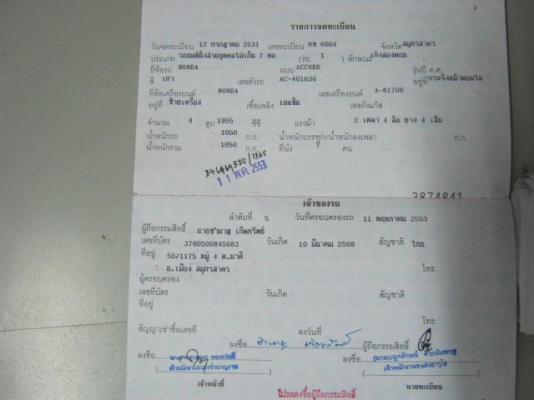 รายการจดทะเบียน
วันจดทะเบียน 12 กรกฎาคม 2531 เลขทะเบียน 6604 จังหวัด สมุทรสาคร
ประเภท รถยนต์นั่งส่วนบุคคลไม่เกิน 7 คน (รย. 1 ) ลักษณะ เก๋งสองตอน
ยี่ห้อรถ HONDA แบบ ACCORD รุ่นปี ค.ศ.
สี เทา เลขตัวรถ AC-401636 อยู่ที่
ยี่ห้อเครื่องยนต์ HONDA เลขเครื่องยนต์ A-81706
อยู่ที่ เชื้อเพลิง เบนซิน เลขถังแก๊ส
จำนวน 4 สูบ 1955 ซีซี แรงม้า 2 เพลา 4 ล้อ ยาง 4 เส้น
น้ำหนักรถ 1050 ก.ก. น้ำหนักบรรทุก/น้ำหนักลงเพลา ก.ก.
น้ำหนักรวม 1050 ก.ก. ที่นั่ง คน
11 พ.ค. 2553
3874841
เจ้าของรถ
ลำดับที่ 5 วันที่ครอบครองรถ 11 พฤษภาคม 2553
ผู้ถือกรรมสิทธิ์
เลขที่บัตร 3760500845083 วันเกิด 10 มีนาคม 2508 สัญชาติ ไทย
ที่อยู่ 50/1175 หมู่ 4
อ.เมือง สมุทรสาคร โทร.
ผู้ครอบครอง
เลขที่บัตร วันเกิด สัญชาติ
ที่อยู่
โทร.
สัญญาเช่าซื้อเลขที่ ลงวันที่
ลงชื่อ ผู้ถือกรรมสิทธิ์
ลงชื่อ ลงชื่อ
เจ้าหน้าที่ นายทะเบียน
โปรดลงชื่อผู้ถือกรรมสิทธิ์